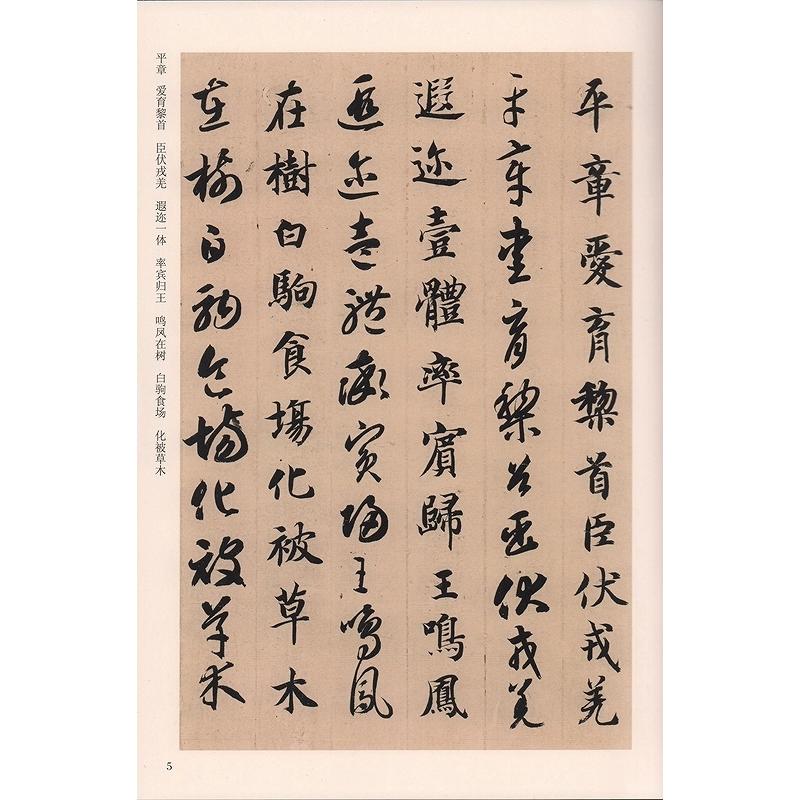 平章愛育黎首臣伏戎羌
平章愛育黎首臣伏戎羌
遐迩壹體率賓歸王鳴鳳
遐迩壹體率賓歸王鳴鳳
在樹白駒食塲化被草木
在樹白駒食場化被草木
平章 爱育黎首 臣伏戎羌 遐迩一体 率宾归王 鸣凤在树 白驹食场 化被草木
5